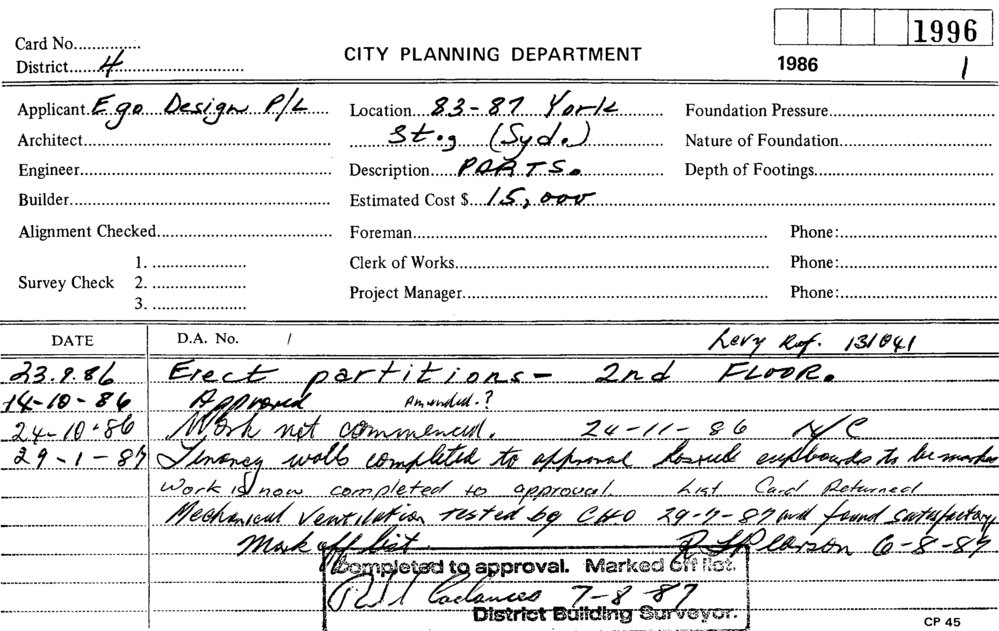 1996
Card No...............
CITY PLANNING DEPARTMENT
District......4
1986 1
Applicant Ego Design P/L Location 83-87 York Foundation Pressure
Architect St., (Syd.) Nature of Foundation
Engineer Description PARTS. Depth of Footings
Builder Estimated Cost $ 15,000
Alignment Checked Foreman Phone:
1. Clerk of Works Phone:
Survey Check 2.
Project Manager Phone:
3.
DATE D.A. No. / Levy Ref. 131041
23.9.86 Erect partitions - 2nd FLOOR.
14-10-86 Approved Amended.?
24-10-86 Work not commenced. 24-11-86 N/C
29-1-87 Tenancy walls completed to approval hosreel cupboards to be
Work is now completed to approval. List Card Returned
Mechanical Ventilation tested by CHO 29-7-87 and found satisfactory
Mark off list. Pearson 6-8-87
Completed to approval. Marked off list.
7-8-87
District Building Surveyor.
CP 45